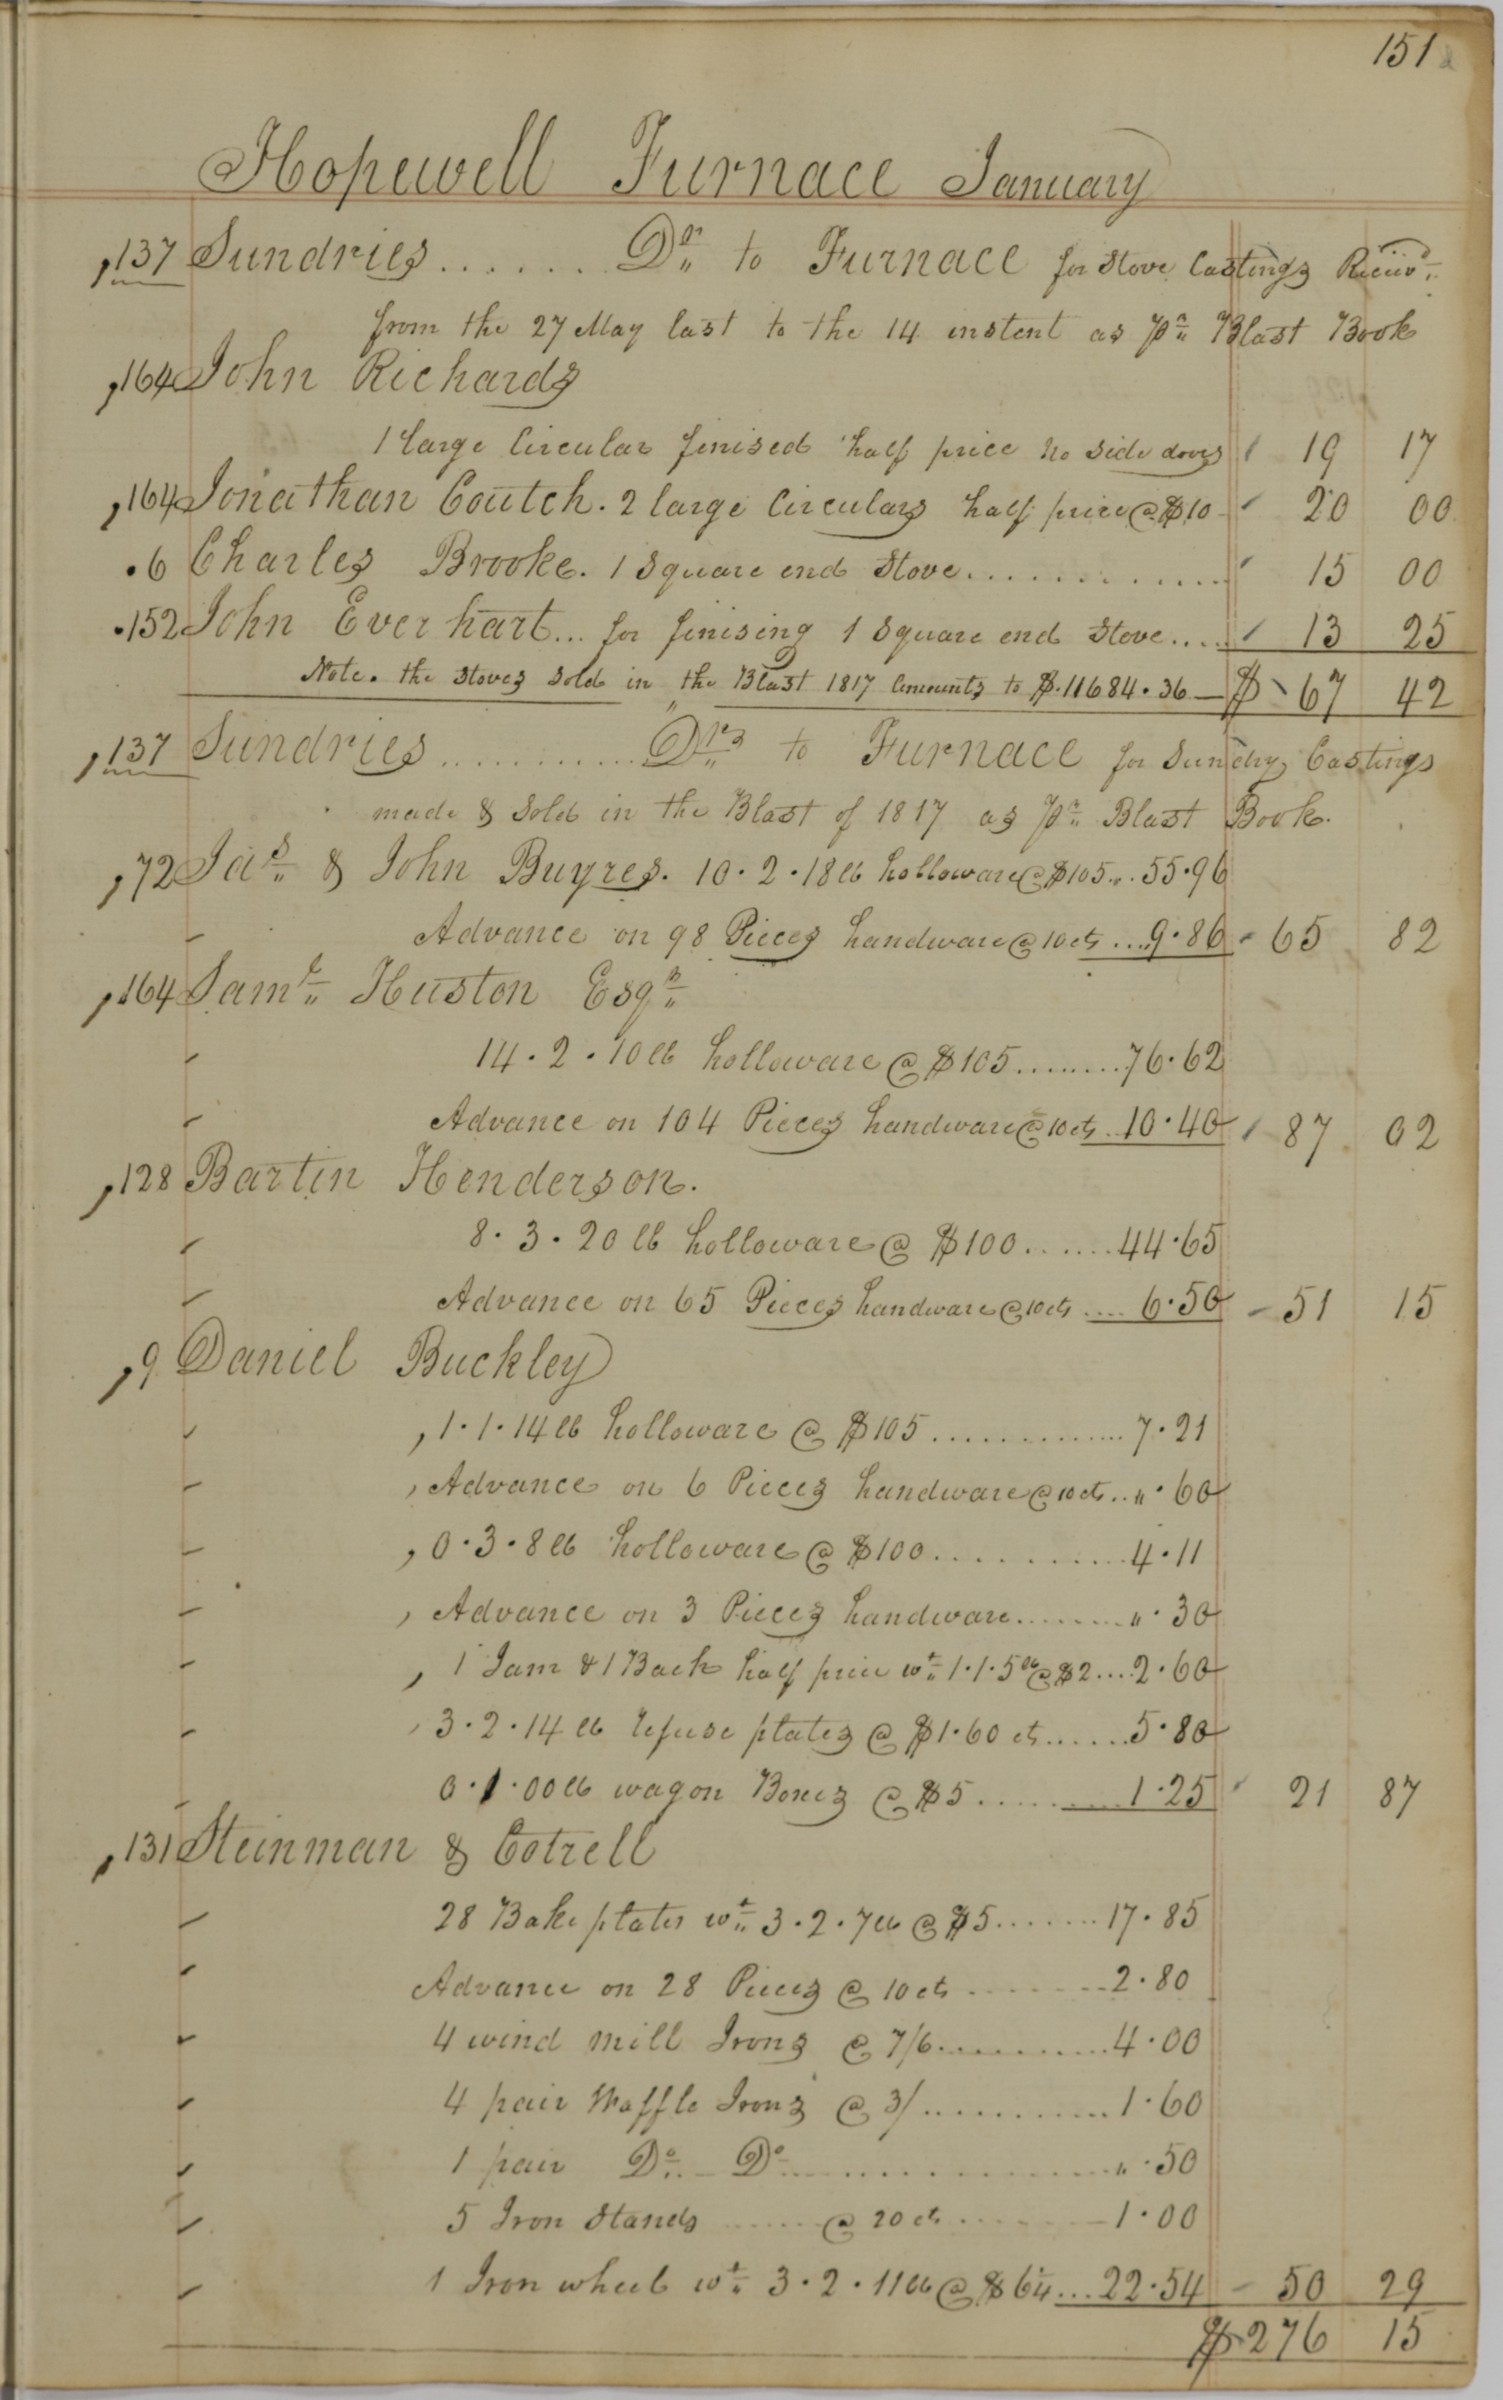 151
Hopewell Furnace January
137 Sundries ....... Dr to Furnace for Stove Castings Reciv
from the 27 May last to the 14 instent as Pr Blast Book
164 John Richards
1 large Circular finised half price no side doors 19 17
164 Jonathan Coutch. 2 large Circulars half price @ $10 20 00
6 Charles Brooke. 1 Square end Stove............. 15 00
152 John Everhart... for finising 1 Square end Stove..... 13 25
Note. the Stoves Sold in the Blast 1817 Amounts to $.11684.36 — $ 67 42
137 Sundries............ Drs to Furnace for Sundry Castings
made & Sold in the Blast of 1817 as Pr Blast Book.
72 Jas & John Buyres. 10.2.18 lb holloware @ $105... 55.96
Advance on 98 Pieces handware @ 10 cts .... 9.86 65 82
164 Saml Huston Esqr
14.2.10 lb holloware @ $105........76.62
Advance on 104 Pieces handware @ 10 cts .. 10.40 87 02
128 Bartin Henderson.
8.3.20 lb holloware @ $100.......44.65
Advance on 65 Pieces handware @ 10 cts .... 6.50 51 15
9 Daniel Buckley
1.1.14 lb holloware @ $105..............7.21
Advance on 6 Pieces handware @ 10 cts .. " .60
0.3.8 lb holloware @ $100............4.11
Advance on 3 Pieces handware........ " .30
1 Jam & 1 Back half price wt 1.1.5 lb @ $2....2.60
3.2.14 lb refuse plates @ $1.60 cts......5.80
0.1.00 lb wagon Boxes @ $5..........1.25 21 87
131 Steinman & Cotrell
28 Bake plates wt 3.2.7 lb @ $5........17.85
Advance on 28 Pieces @ 10 cts ........2.80
4 wind mill Irons @ 7/6............4.00
4 pair Waffle Irons @ 3/............1.60
1 pair Do Do ................ " .50
5 Iron Stands ...... @ 20 cts ........1.00
1 Iron wheel wt 3.2.11 lb @ $64....22.54 50 29
$ 276 15